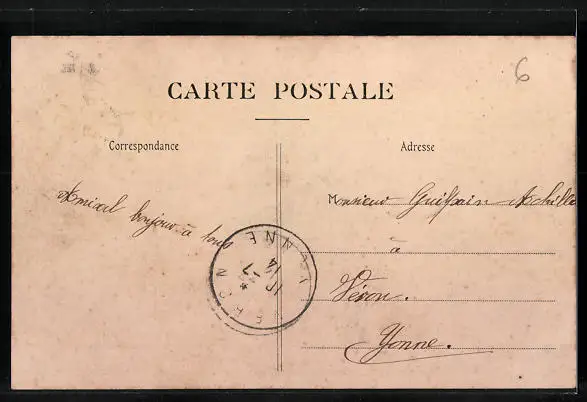 6
CARTE POSTALE
Correspondance
Adresse
Amical bonjour à tous
Monsieur Achille
à
Véron.
Yonne.
VERON
YONNE